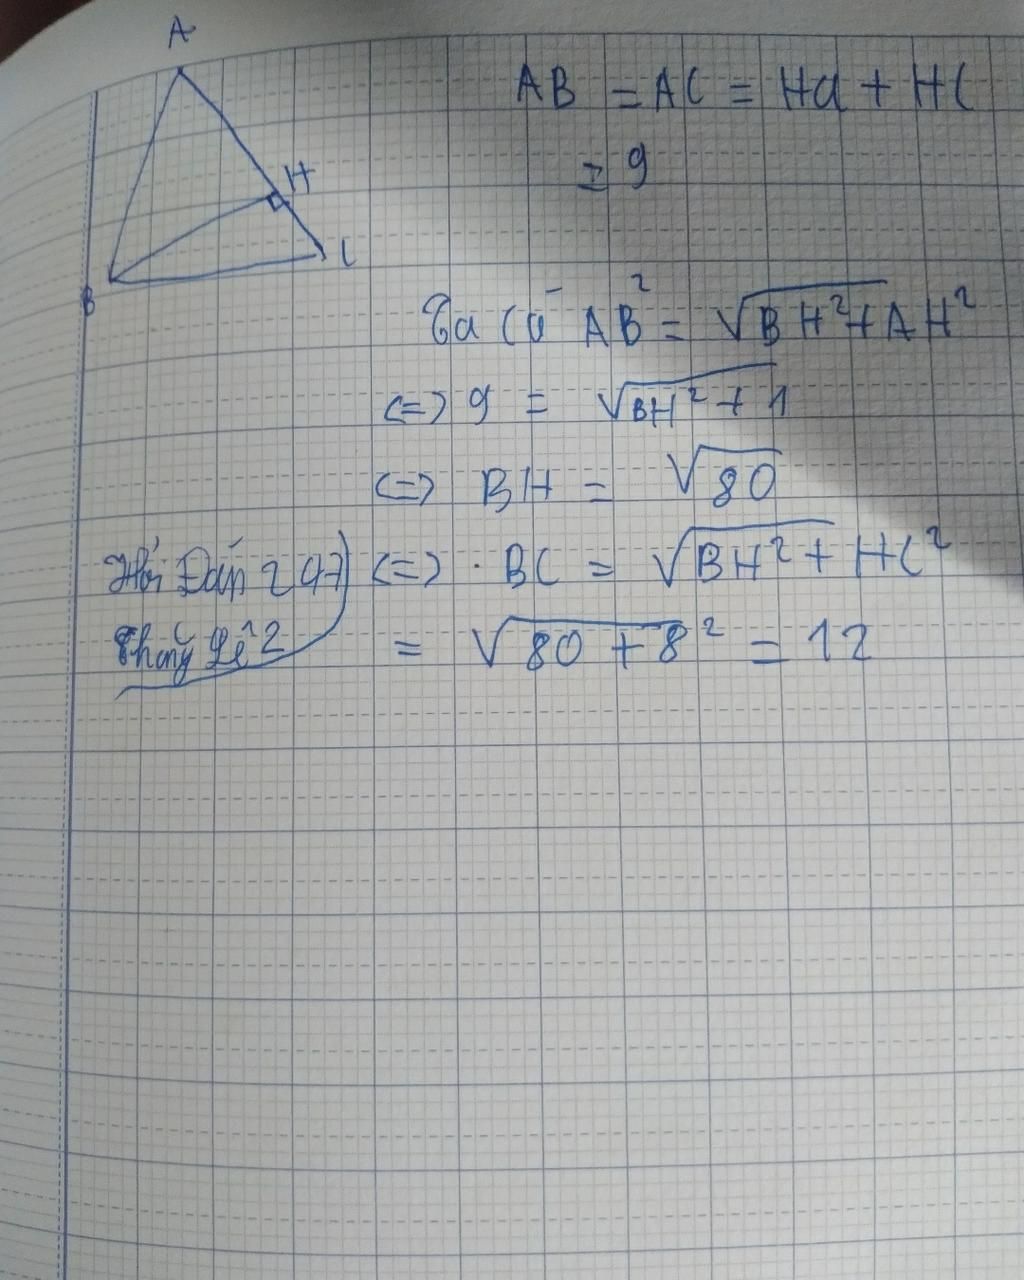 A
H
B
C
AB = AC = Ha + HC
= 9
Ta có AB² = √BH² + AH²
<=> 9 = √BH² + 1
<=> BH = √80
Hỏi Đáp 247
<=> . BC = √BH² + HC²
= √80 + 8² = 12